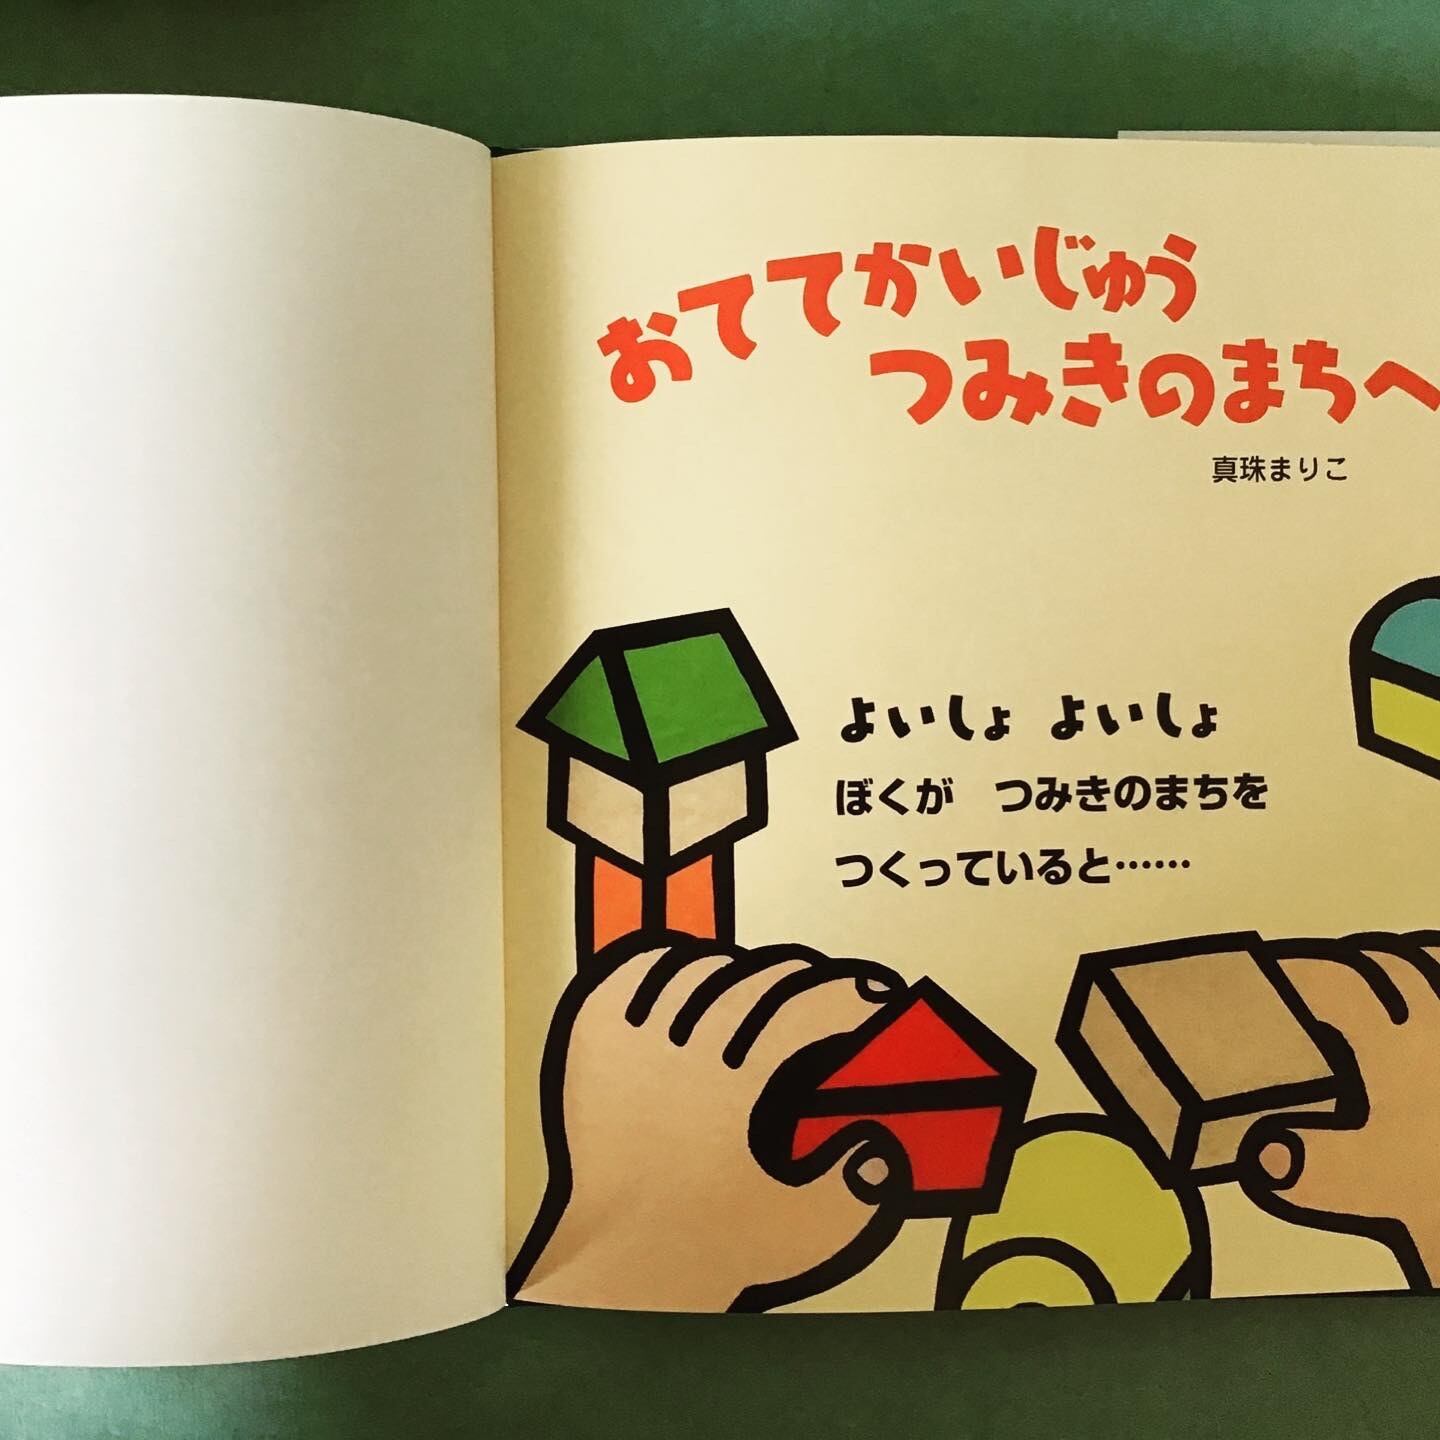 おててかいじゅう
つみきのまちへ
真珠まりこ
よいしょ よいしょ
ぼくが つみきのまちを
つくっていると……